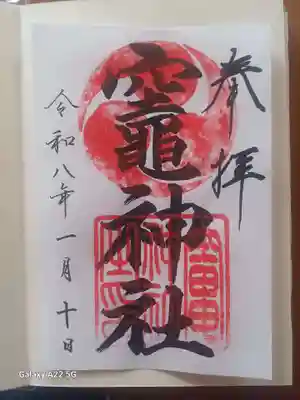 奉拝
竈神社
令和八年一月十日
Galaxy A22 5G